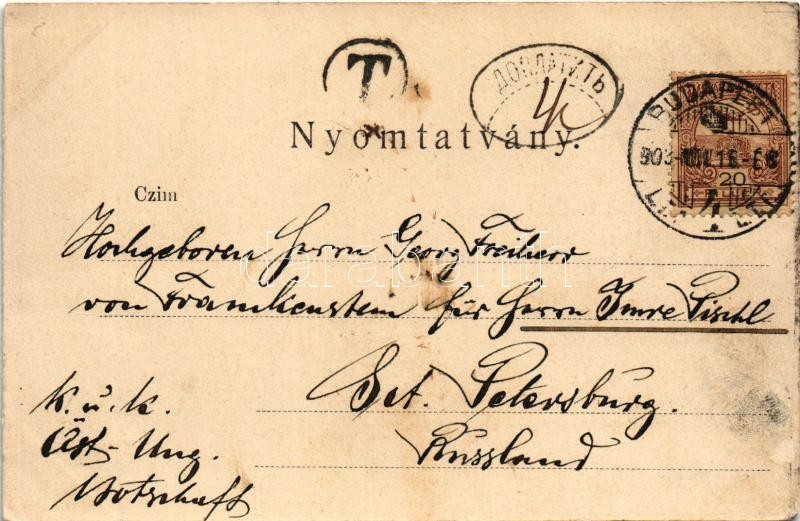 T
ДОПЛАТИТЬ
4 k
BUDAPEST
20
FILLÉR
Nyomtatvány.
Czim
Hochgeboren Herrn Georg Freiherr
von Franckenstein für Herrn Imre Pischl
k. u. k.
Öst-Ung.
Botschaft
Sct. Petersburg.
Russland
darabanth